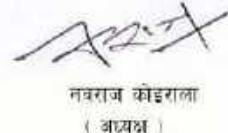 नवराज कोइराला
( अध्यक्ष )